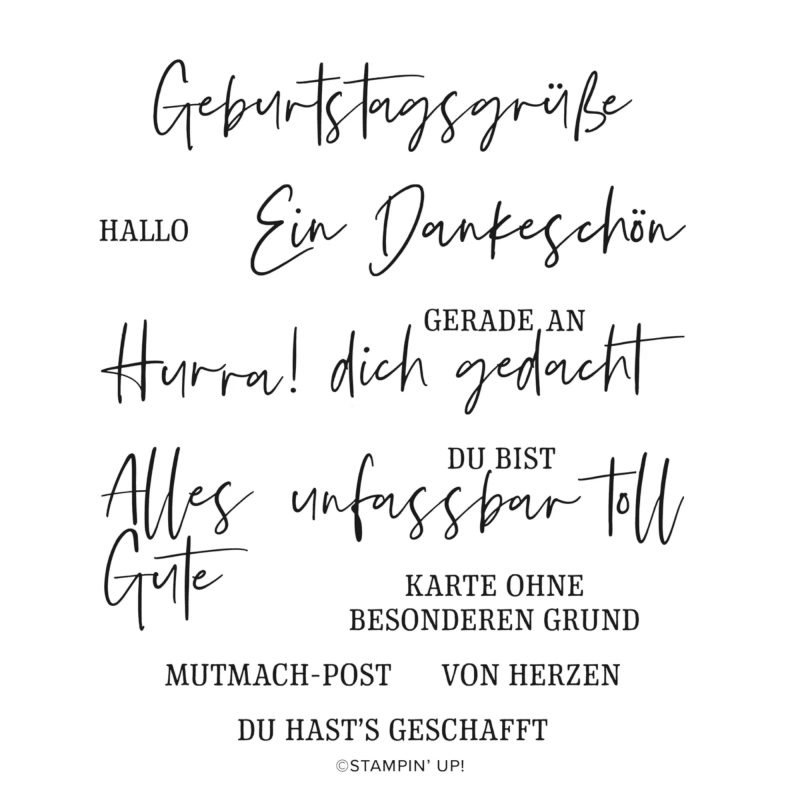 Geburtstagsgrüße
HALLO
Ein Dankeschön
Hurra!
GERADE AN
dich gedacht
Alles
Gute
DU BIST
unfassbar toll
KARTE OHNE
BESONDEREN GRUND
MUTMACH-POST
VON HERZEN
DU HAST'S GESCHAFFT
©STAMPIN' UP!